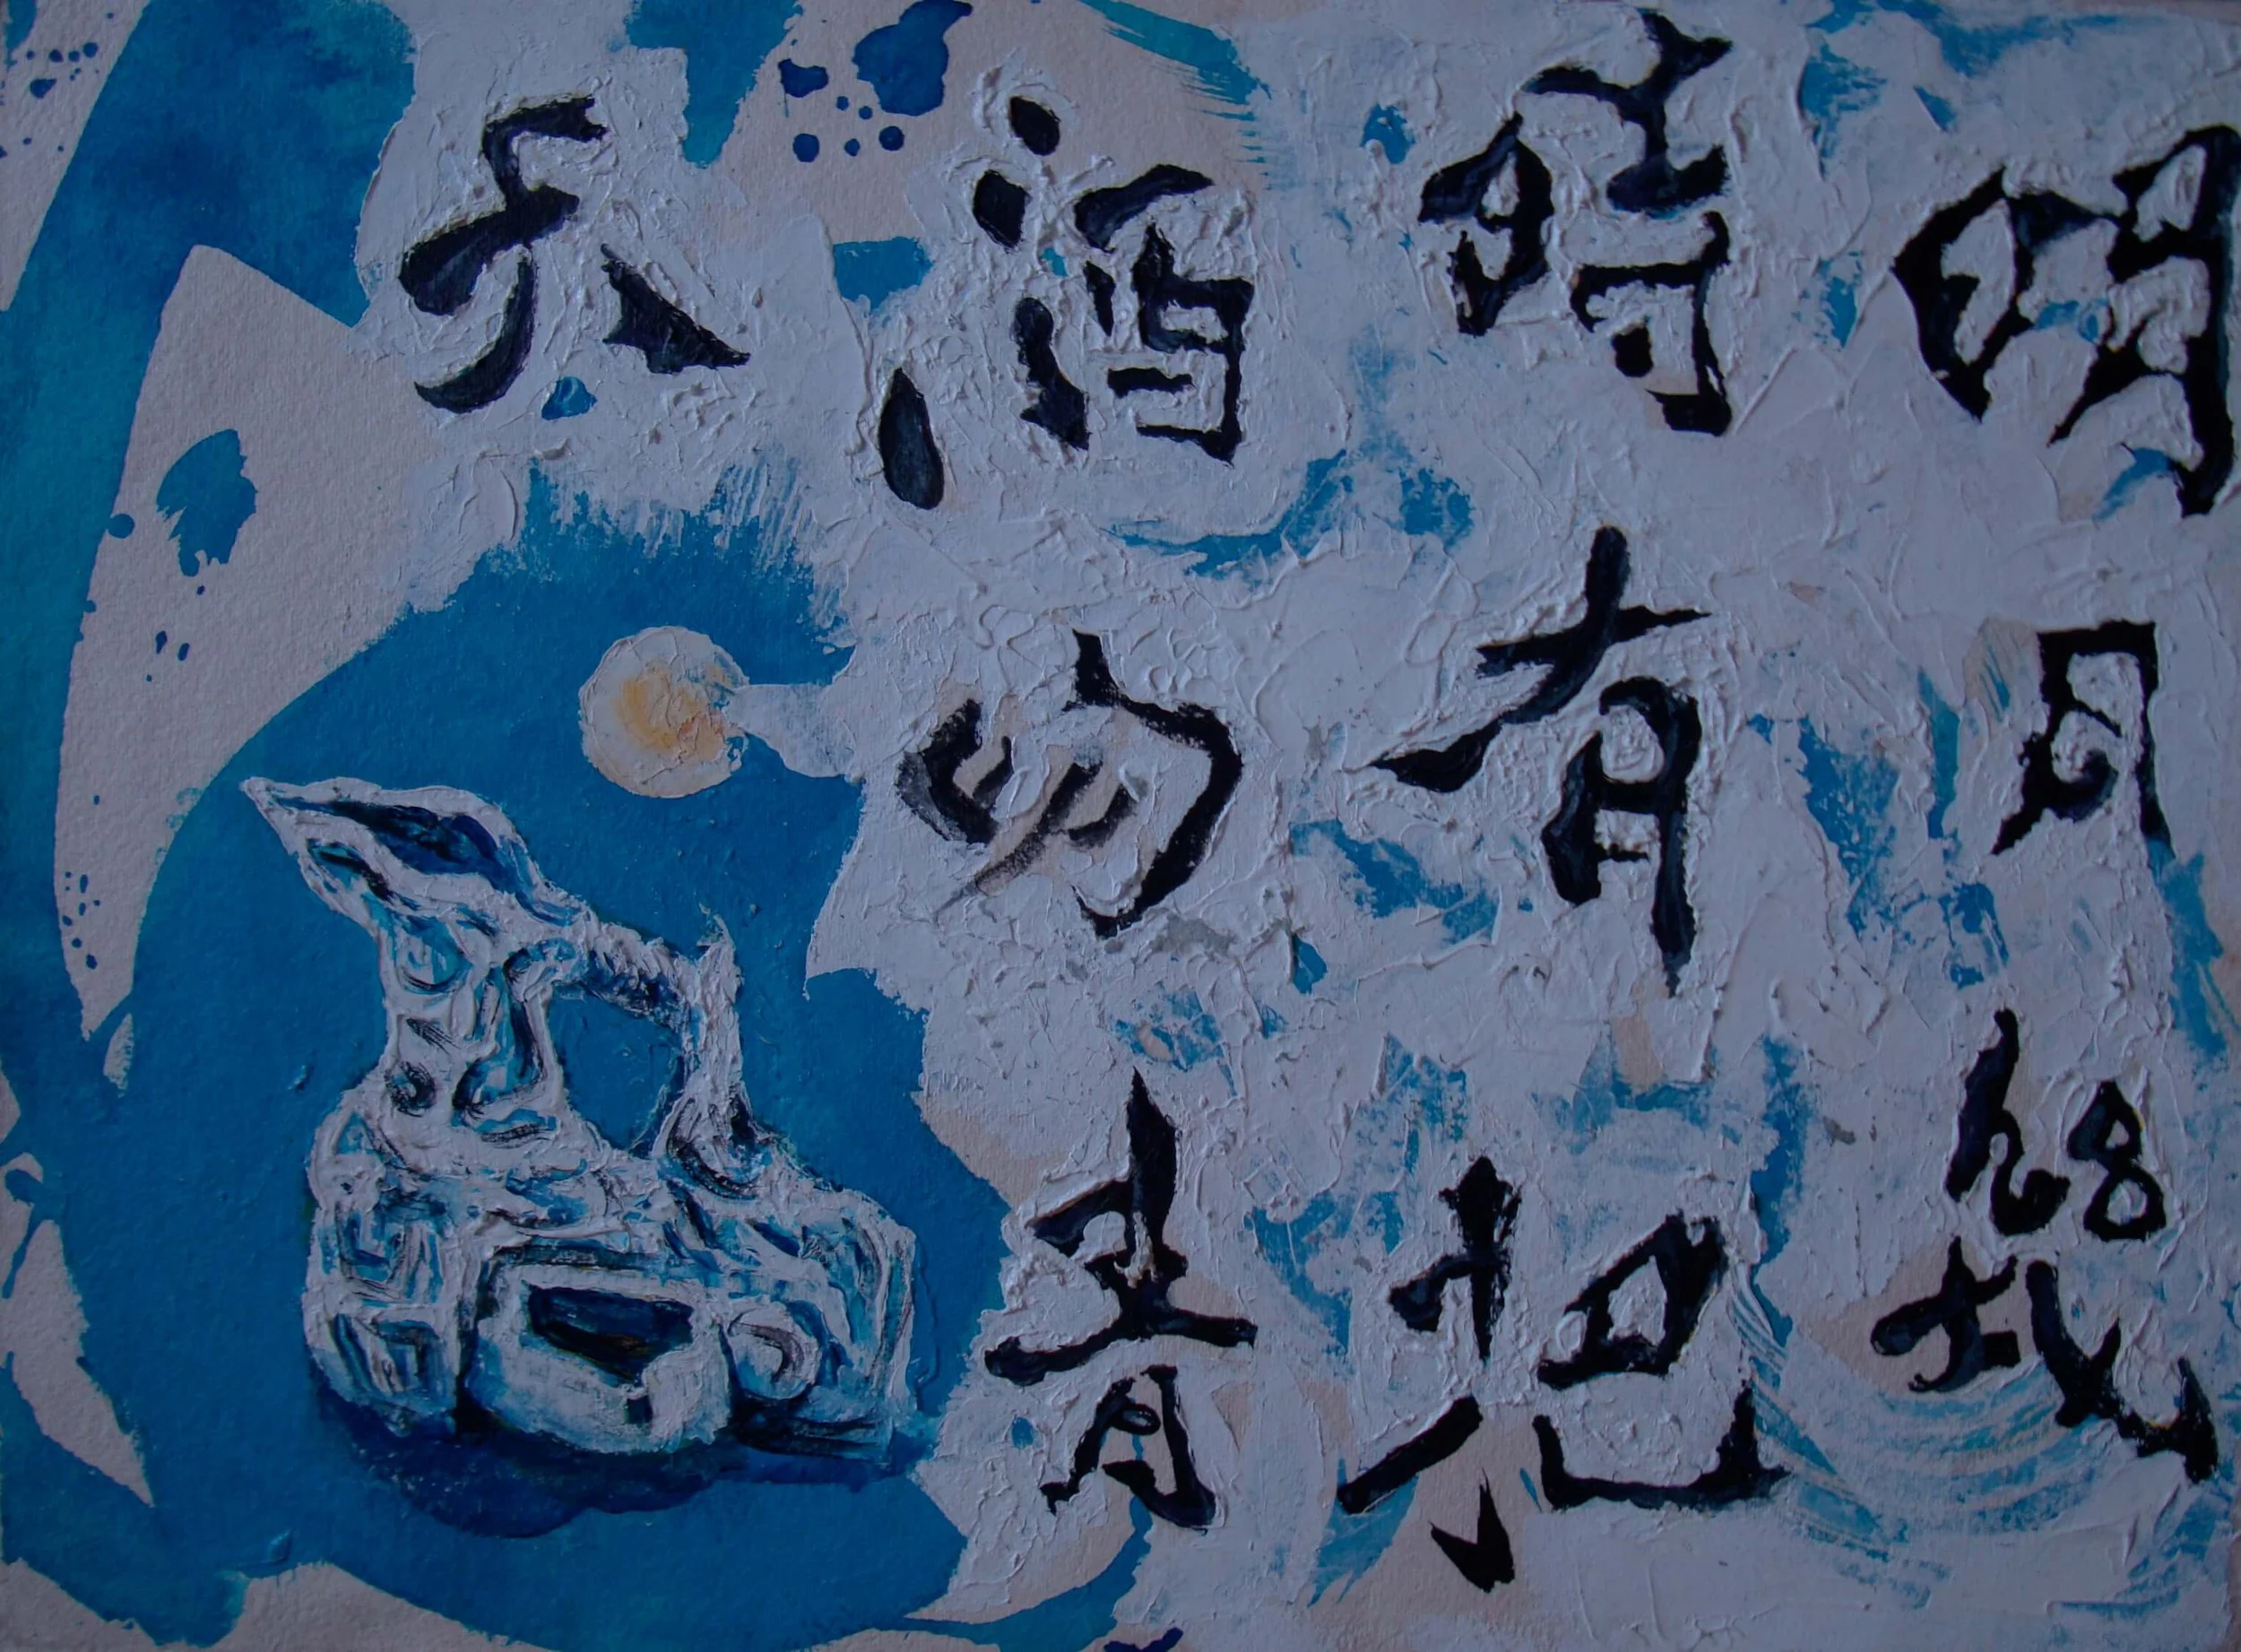 明月幾
時有把
酒問青
天